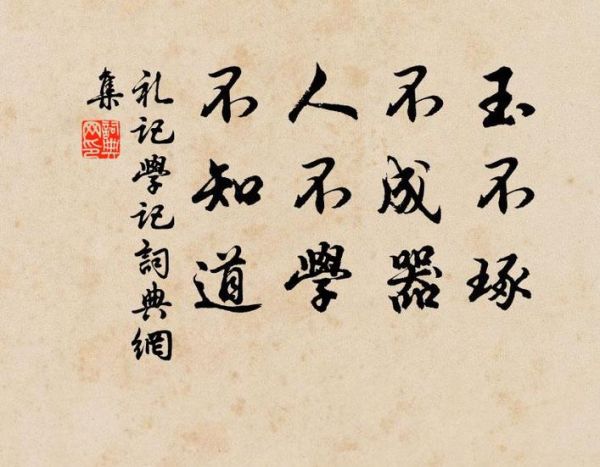 玉不琢
不成器
人不學
不知道
礼記學記詞典網
集
詞典
网印